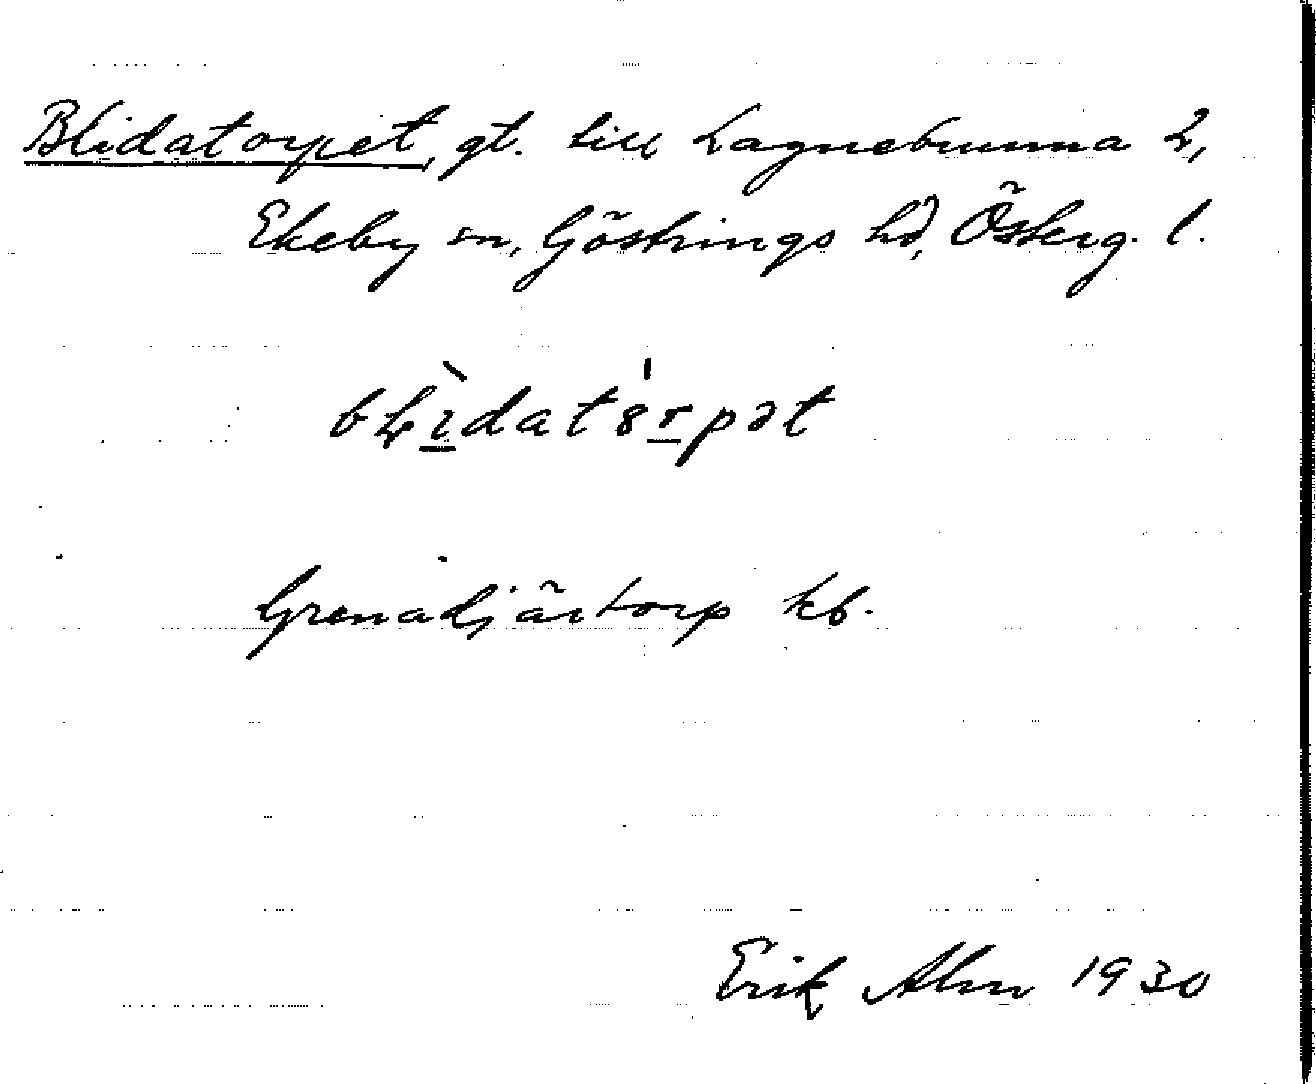 Blidatorpet, gt. till Lagnebrunna 2,
Ekeby sn, Göstrings hd, Österg. l.
bḷìdatȣ́rpət
Grenadjärtorp kb.
Erik Alm 1930